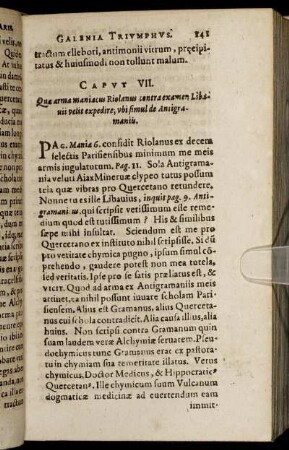 GALENIA TRIVMPHVS. 141
tractum ellebori, antimonii vitrum, pręcipi-
tatus & huiusmodi non tollunt malum.
CAPVT VII.
Quæ arma maniacus Riolanus contra examen Liba-
uii velit expedire, vbi simul de Antigra-
maniis.
PAG. Mania 6. considit Riolanus ex decem
selectis Parisiensibus minimum me meis
armis iugulaturum. Pag. 11. Sola Antigrama-
nia veluti Aiax Mineruæ clypeo tutus possum
tela quæ vibras pro Quercetano retundere.
Nonne tu es ille Libauius, inquit pag. 9. Anti-
gramani qui scripsit vetissimum esse reme-
dium quod est tutissimum? His & similibus
sepe mihi insultat. Sciendum est me pro
Quercetano ex instituto nihil scripsisse. Si dū
pro veritate chymica pugno, ipsum simul cō-
prehendo, gaudere potest non mea tutela,
sed veritatis. Ipse pro se satis præliatus est, &
vicit. Quod ad arma ex Antigramaniis meis
attinet, ea nihil possunt iuuare scholam Pari-
siensem. Alius est Gramanus, alius Querceta-
nus cui schola contradicit. Alia causa illius, alia
huius. Non scripsi contra Gramanum quin
suam laudem veræ Alchymiæ seruatem. Pseu-
dochymicus tunc Gramanus erat ex pastora-
tu in chymiam sua temeritate illatus. Verus
chymicus, Doctor Medicus, & Hippocratic9
Quercetan9. Ille chymicum suum Vulcanum
dogmaticæ medicinæ ad euertendam eam
immit-